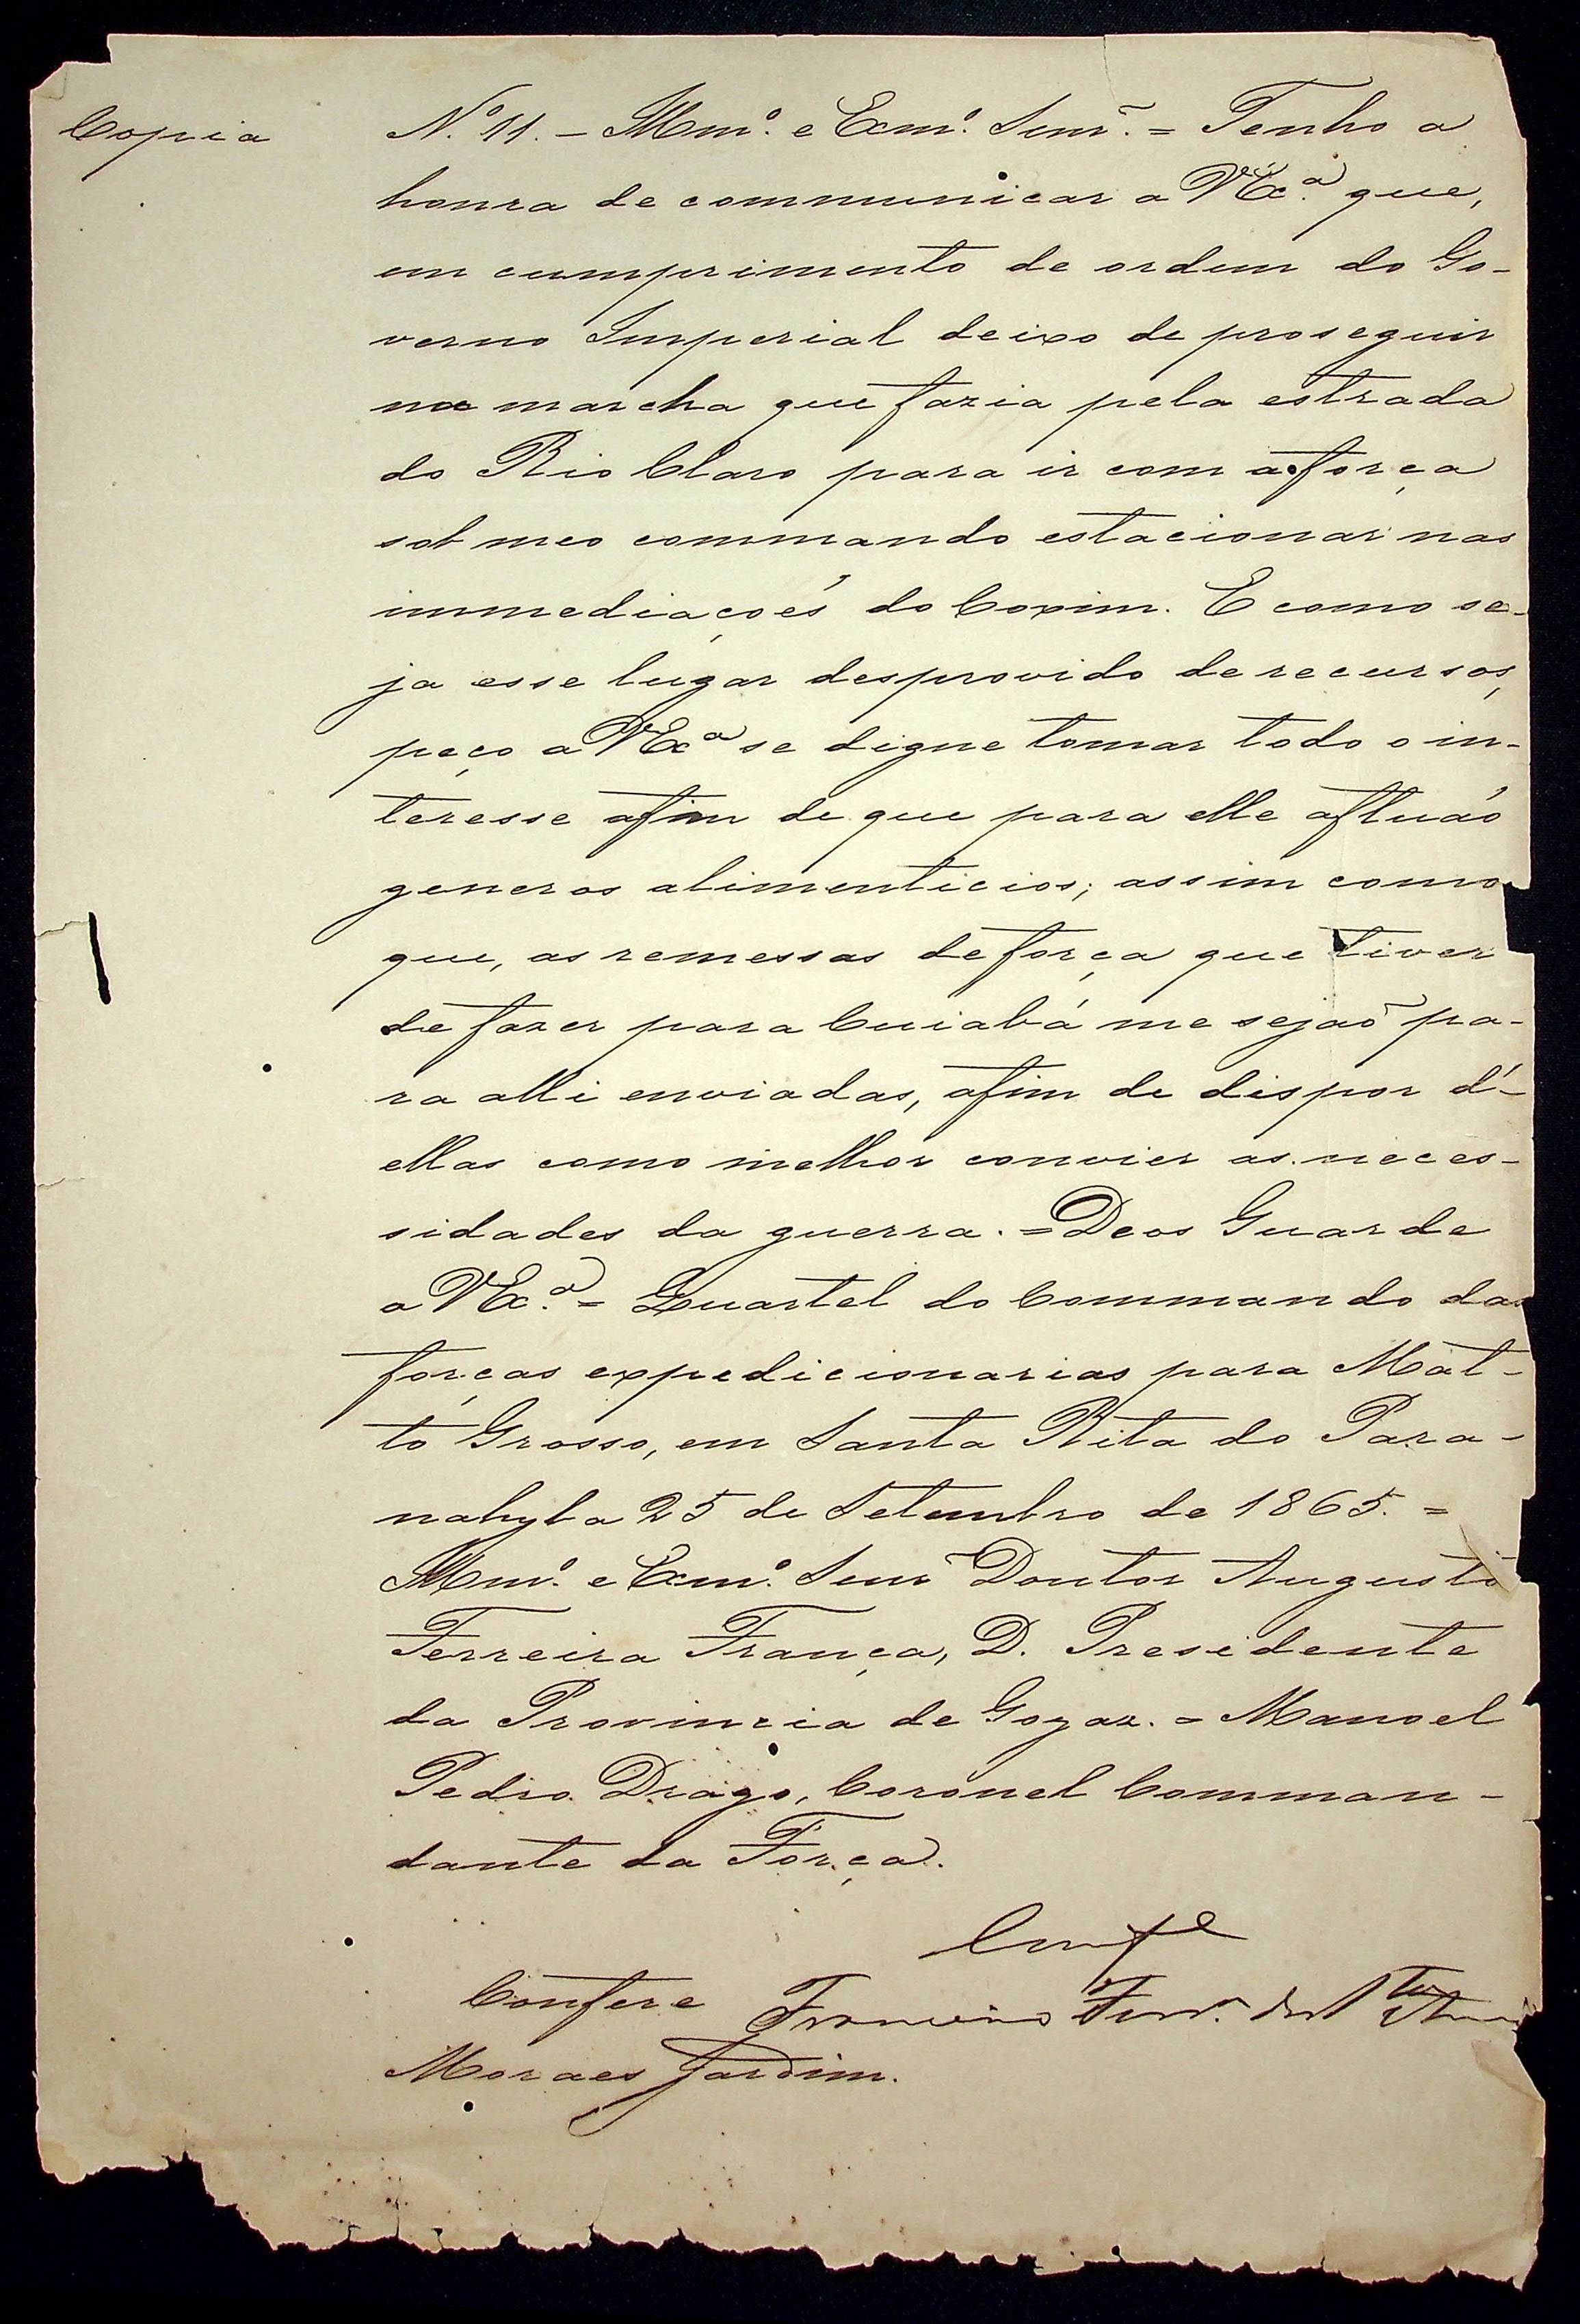 Copia
N.º 11. - Illmº. e Exmº. Senr. = Tenho a
honra de communicar a VExª. que,
em cumprimento de ordem do Go-
verno Imperial deixo de proseguir
na marcha que fazia pela estrada
do Rio Claro para ir com a força
sob meo commando estacionar nas
immediações do Coxim. E como se-
ja esse lugar desprovido de recursos,
peço a VExª se digne tomar todo o in-
teresse afim de que para elle afluão
generos alimenticios; assim como
que, as remessas de força que tiver
de fazer para Cuiabá me sejaõ pa-
ra alli enviadas, afim de dispor d'-
ellas como melhor convier as neces-
sidades da guerra. = Deos Guarde
a VExª. = Quartel do Commando das
forças expedicionarias para Mat-
to Grosso, em Santa Rita do Para-
nahyba 25 de Setembro de 1865. =
Illmº. e Exmº. Senr Doutor Augusto
Ferreira França, D. Presidente
da Provincia de Goyaz. = Manoel
Pedro Drago, Coronel Comman-
dante da Força.
Confere
Moraes Jardim.